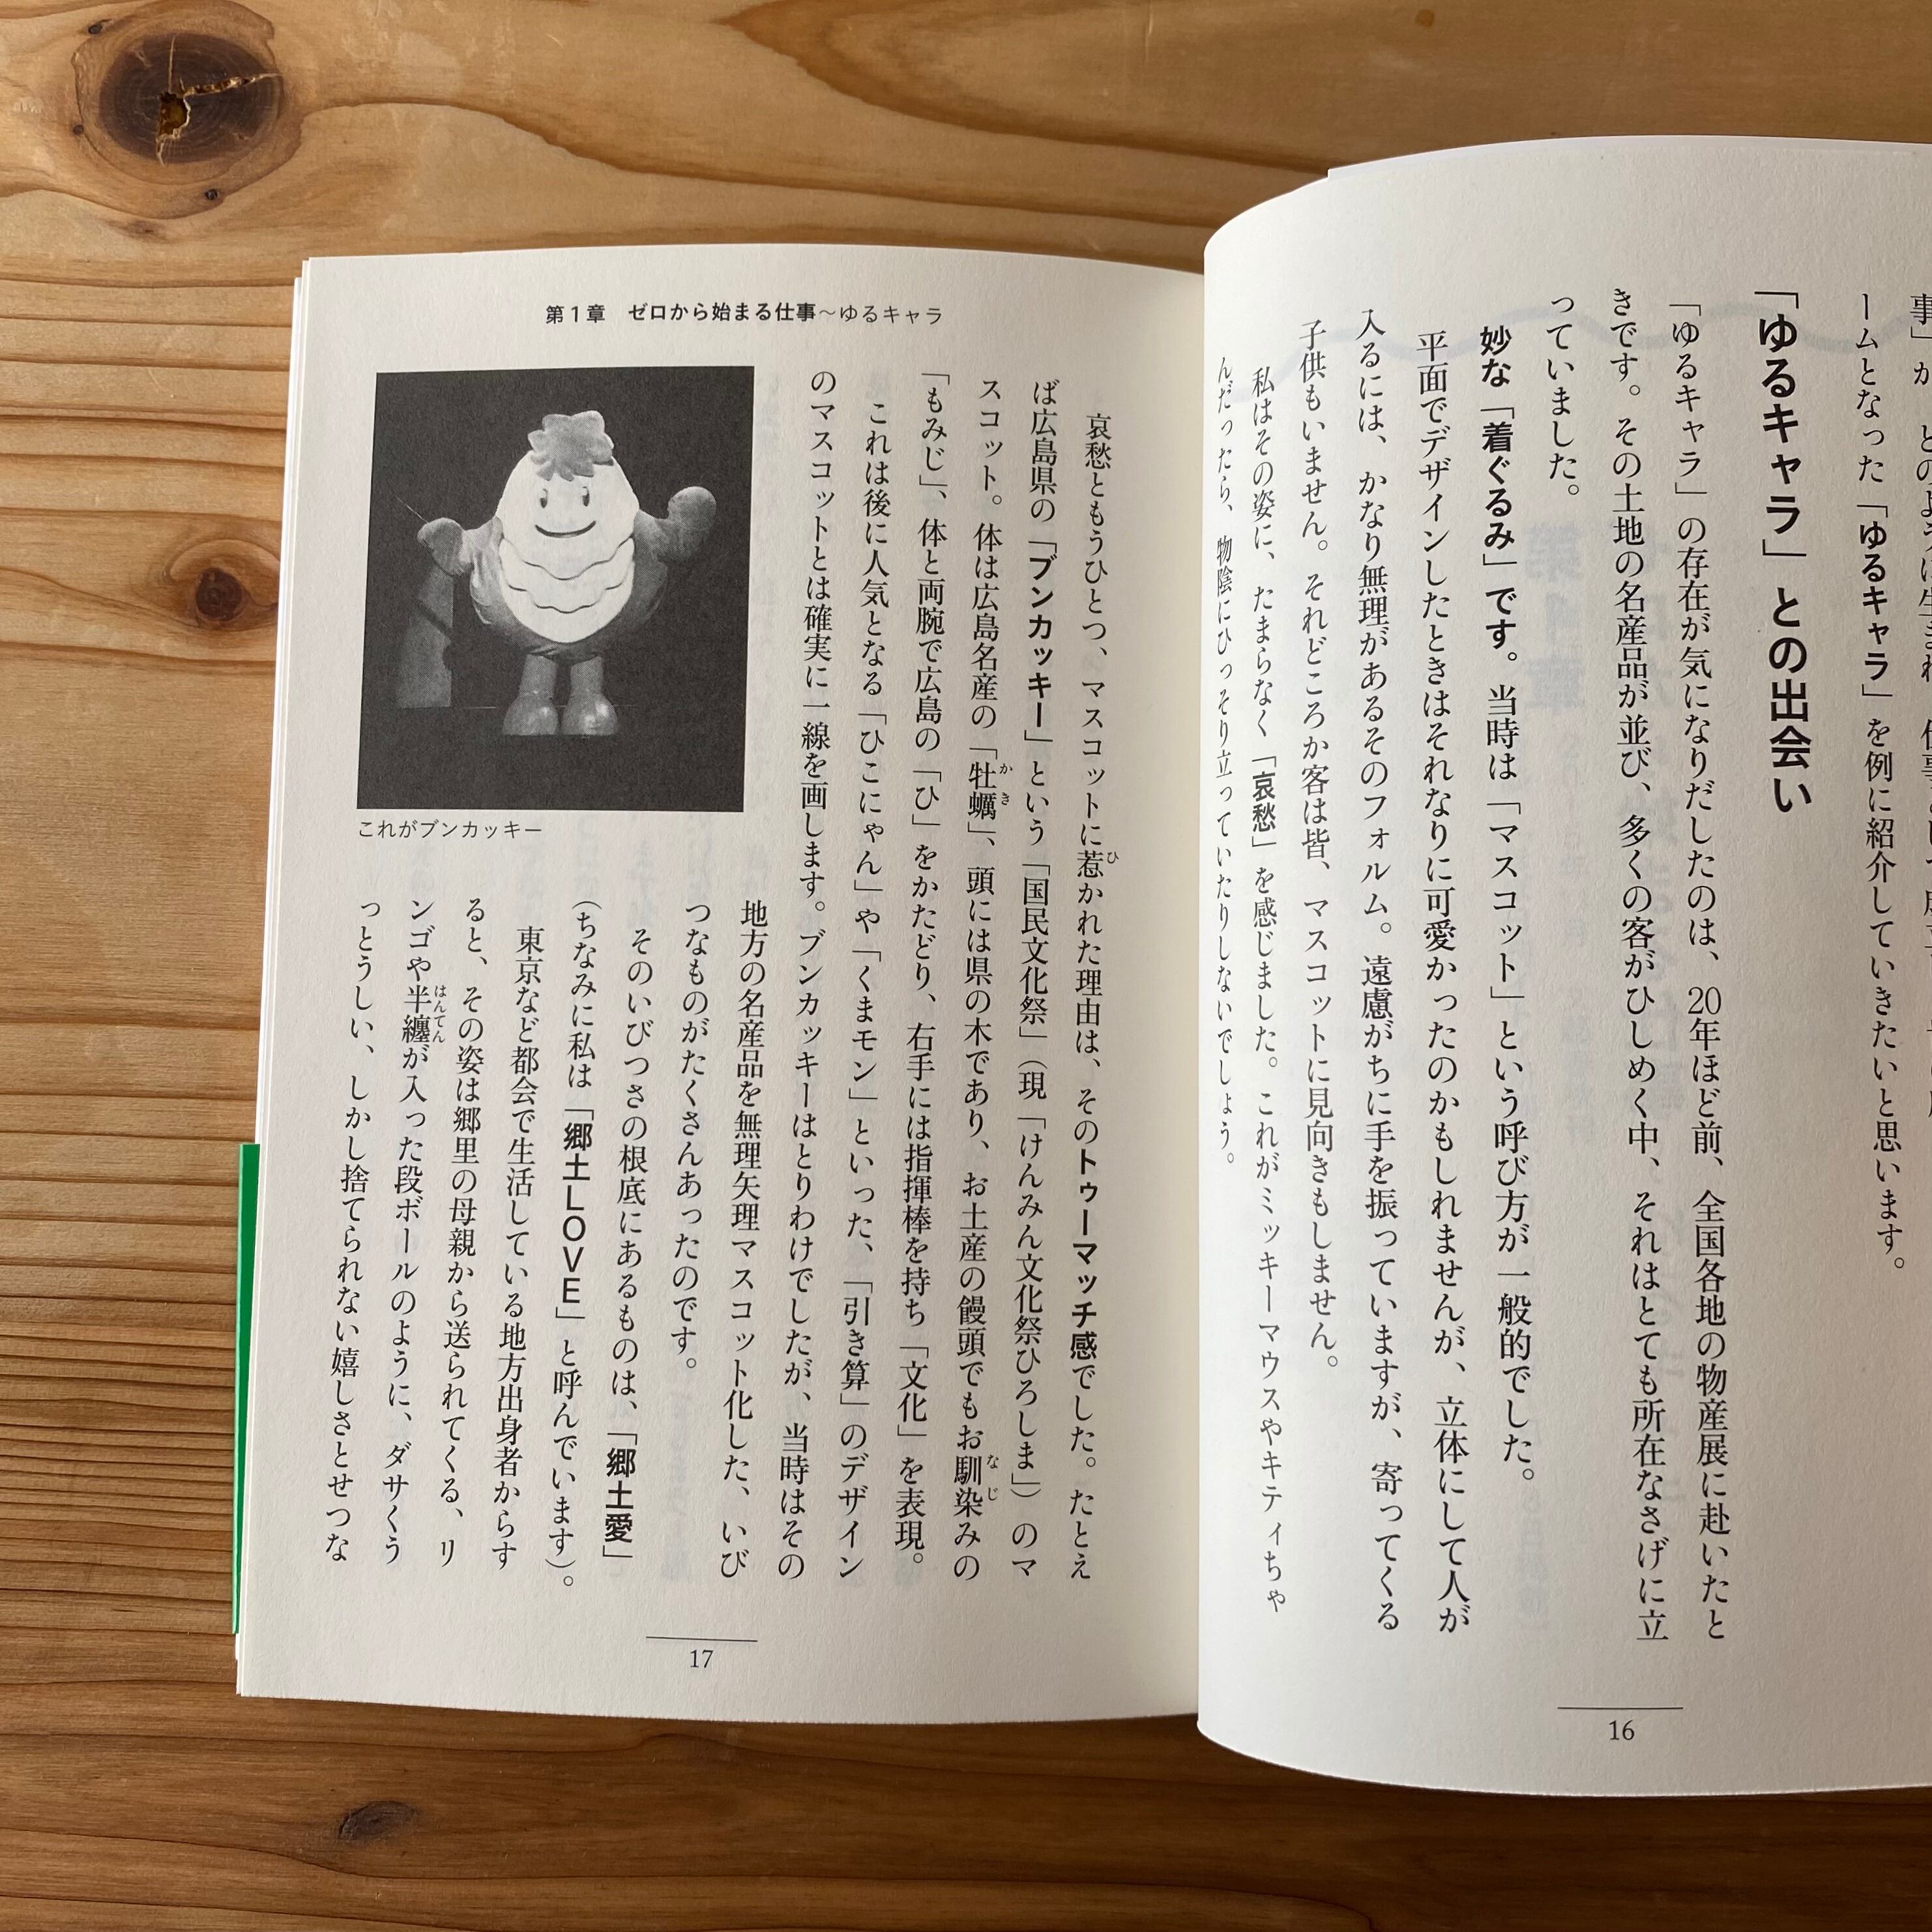 ームとなった「ゆるキャラ」を例に紹介していきたいと思います。
「ゆるキャラ」との出会い
「ゆるキャラ」の存在が気になりだしたのは、20年ほど前、全国各地の物産展に赴いたと
きです。その土地の名産品が並び、多くの客がひしめく中、それはとても所在なさげに立
っていました。
妙な「着ぐるみ」です。当時は「マスコット」という呼び方が一般的でした。
平面でデザインしたときはそれなりに可愛かったのかもしれませんが、立体にして人が
入るには、かなり無理があるそのフォルム。遠慮がちに手を振っていますが、寄ってくる
子供もいません。それどころか客は皆、マスコットに見向きもしません。
私はその姿に、たまらなく「哀愁」を感じました。これがミッキーマウスやキティちゃ
んだったら、物陰にひっそり立っていたりしないでしょう。
16
第1章 ゼロから始まる仕事〜ゆるキャラ
哀愁ともうひとつ、マスコットに惹かれた理由は、そのトゥーマッチ感でした。たとえ
ば広島県の「ブンカッキー」という「国民文化祭」（現「けんみん文化祭ひろしま」）のマ
スコット。体は広島名産の「牡蠣」、頭には県の木であり、お土産の饅頭でもお馴染みの
「もみじ」、体と両腕で広島の「ひ」をかたどり、右手には指揮棒を持ち「文化」を表現。
これは後に人気となる「ひこにゃん」や「くまモン」といった、「引き算」のデザイン
のマスコットとは確実に一線を画します。ブンカッキーはとりわけでしたが、当時はその
地方の名産品を無理矢理マスコット化した、いび
つなものがたくさんあったのです。
そのいびつさの根底にあるものは、「郷土愛」
（ちなみに私は「郷土LOVE」と呼んでいます）。
東京など都会で生活している地方出身者からす
ると、その姿は郷里の母親から送られてくる、リ
ンゴや半纏が入った段ボールのように、ダサくう
っとうしい、しかし捨てられない嬉しさとせつな
これがブンカッキー
17